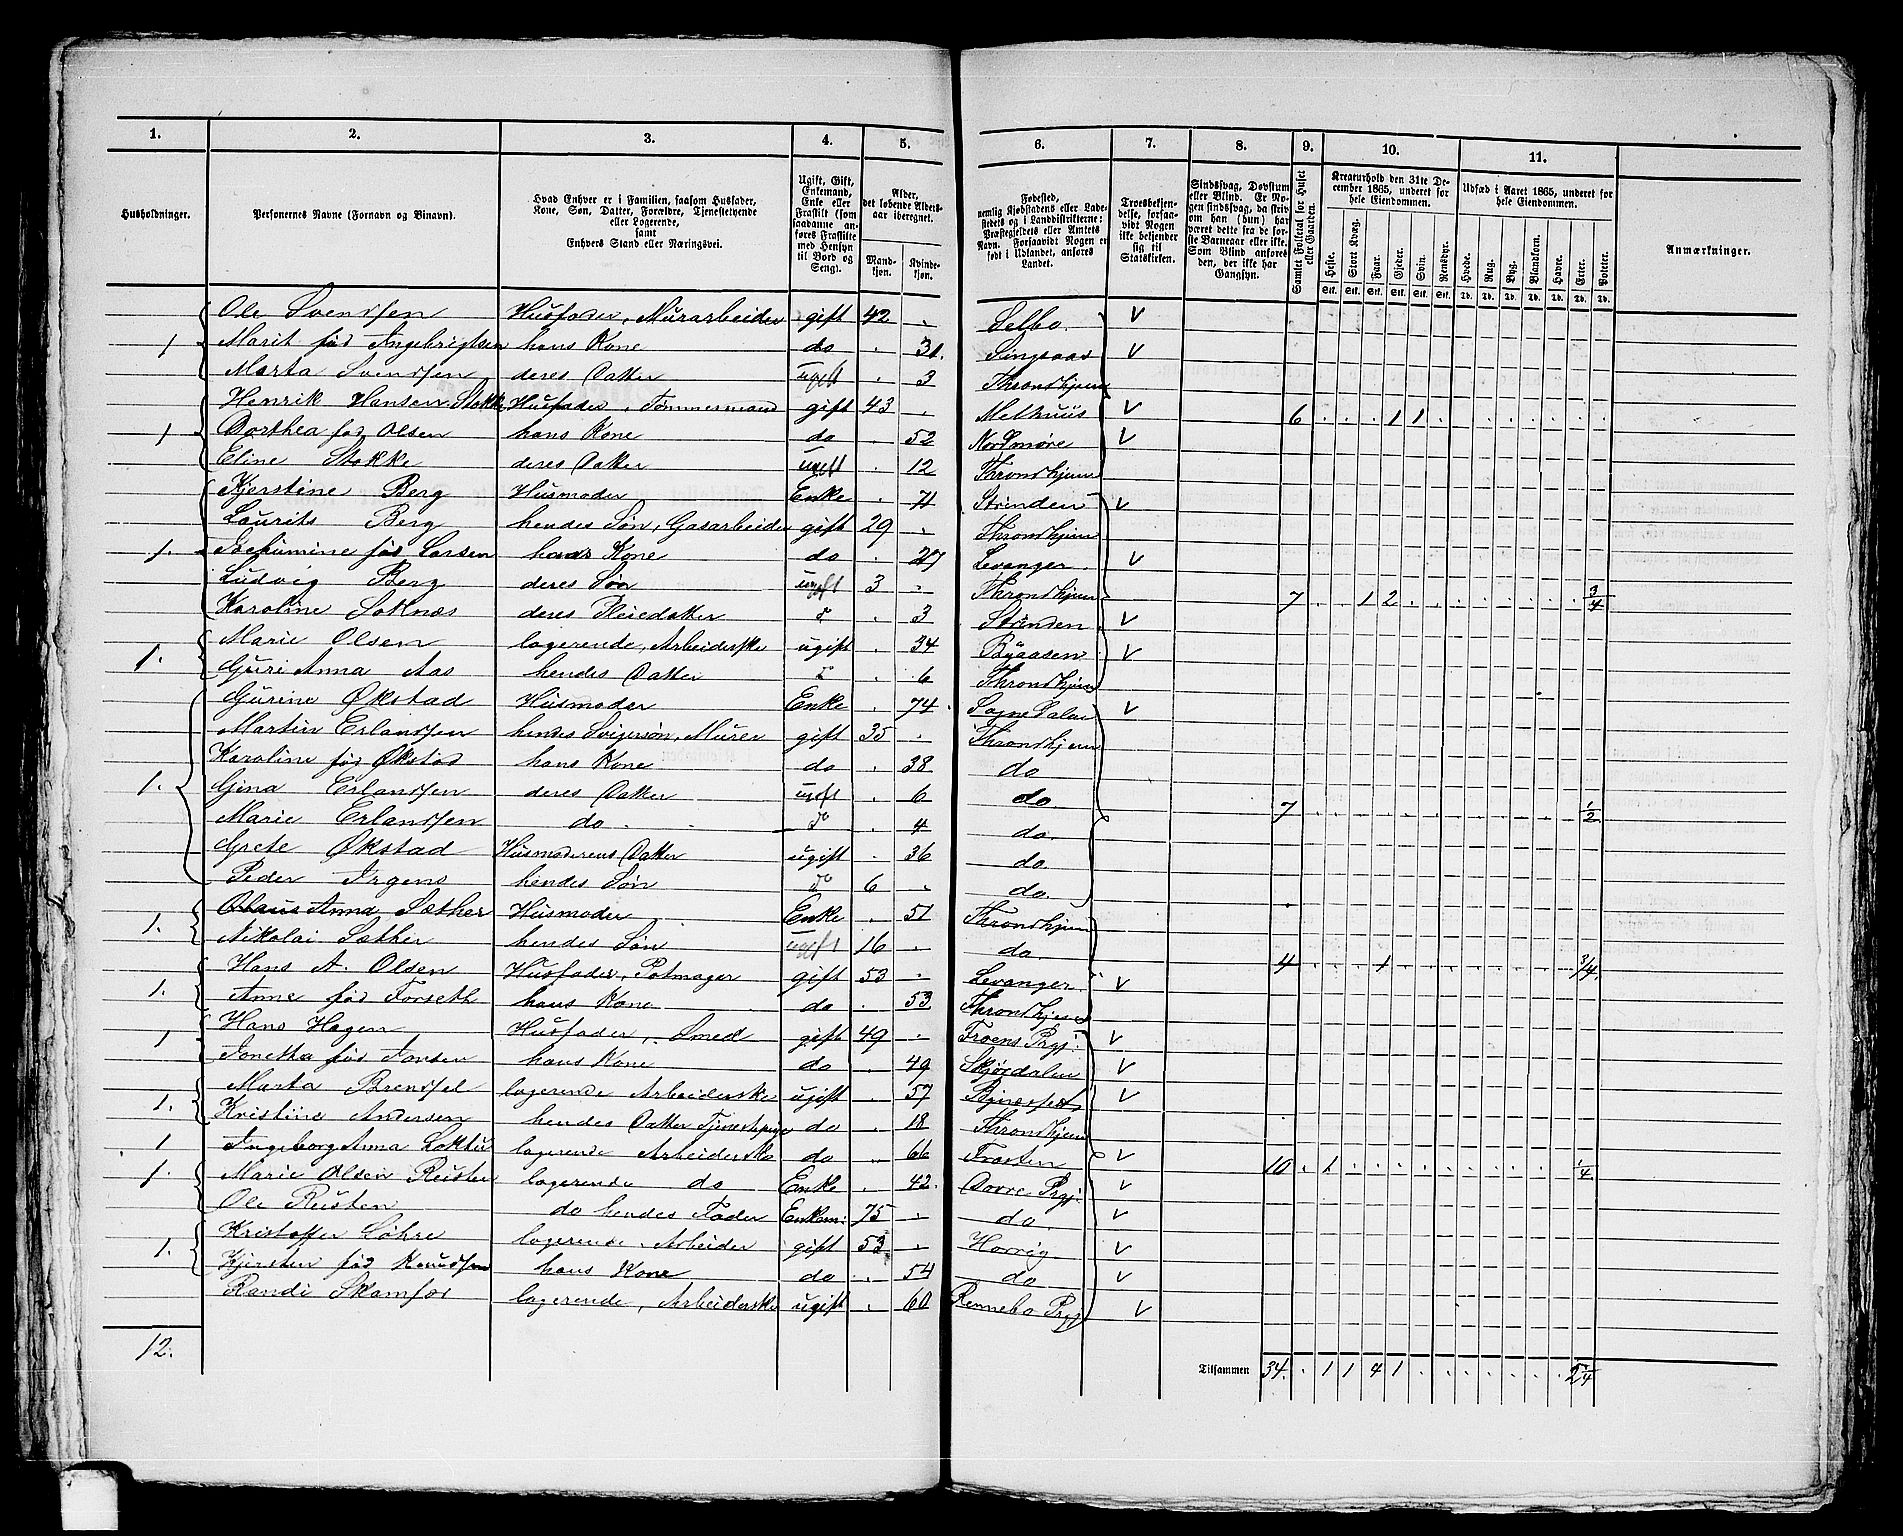 1. 2. 3. 4. 5. 6. 7. 8. 9. 10. 11.
Husholdninger.
Personernes Navne (Fornavn og Binavn).
Hvad Enhver er i Familien, saasom Husfader,
Kone, Søn, Datter, Forældre, Tjenestetyende
eller Logerende,
samt
Enhvers Stand eller Næringsvei.
Ugift, Gift,
Enkemand,
Enke eller
Fraskilt (som
saadanne an-
føres Fraskilte
med Hensyn
til Bord og
Seng).
Alder,
det løbende Alders-
aar iberegnet.
Mand-
kjøn.
Kvinde-
kjøn.
Fødested,
nemlig Kjøbstadens eller Lade-
stedets og i Landdistrikterne:
Præstegjeldets eller Amtets
Navn. Forsaavidt Nogen er
født i Udlandet, anføres
Landet.
Troesbekjen-
delse, forsaa-
vidt Nogen
ikke bekjender
sig til
Statskirken.
Sindssvag, Døvstum
eller Blind. Er No-
gen sindssvag, da skriv
om han (hun) har
været dette fra de før-
ste Barneaar eller ikke.
Som Blind anføres
den, der ikke har
Gangsyn.
Samlet Folketal for Huset
eller Gaarden.
Kreaturhold den 31te De-
cember 1865, underet for
hele Eiendommen.
Heste. Stort Kvæg. Faar. Gjeder. Svin. Rensdyr.
Stk. Stk. Stk. Stk. Stk. Stk.
Udsæd i Aaret 1865, underet for
hele Eiendommen.
Hvede. Rug. Byg. Blandkorn. Havre. Erter. Poteter.
Td. Td. Td. Td. Td. Td. Td.
Anmærkninger.
Ole Svendsen Husfader, Murarbeider gift 42 Selbo. V
1 Marit fød Ingebrigtsen hans Kone do 31. Singsaas V
Marta Svendsen deres Datter ugift 3 Throndhjem
Henrik Hansen Stokke Husfader, Tømmermand gift 43 Melhuus V 6 1 1
1 Dorthea fød Olsen hans Kone do 52 Nordmøre V
Eline Stokke deres Datter ugift 12 Throndhjem
Kjerstine Berg Husmoder Enke 71 Strinden V
Laurits Berg hendes Søn, Gasarbeider gift 29 Throndhjem
1. Jochumine fød Larsen hans Kone do 27 Levanger. V
Ludvig Berg deres Søn ugift 3 Throndhjem 7 1 2 3/4
Karoline Soknæs deres Pleiedatter do 3 Strinden V
1. Marie Olsen logerende, Arbeiderske ugift 34 Byaasen V
Guri Anna Aas hendes Datter do 6 Throndhjem
Gurine Økstad Husmoder Enke 74 Sognedalen V
Martin Erlandsen hendes Svigersøn, Murer gift 35 Throndhjem
Karoline fød Økstad hans Kone do 38 do
1. Gina Erlandsen deres Datter ugift 6 do 7 1/2
Marie Erlandsen do do 4 do
Grete Økstad Husmoderens Datter ugift 36 do
Peder Irgens hendes Søn do 6 do
1. Anna Sæther Husmoder Enke 51 Throndhjem
Nikolai Sæther hendes Søn ugift 16 do 4 1 3/4
Hans A. Olsen Husfader, Potmager gift 53 Levanger. V
1. Anne fød Forseth hans Kone do 53 Throndhjem
Hans Hagen Husfader, Smed gift 49 Froens Prgj. V
1 Jonetha fød Jonsen hans Kone do 49 Skjørdalen V
Marta Brendsel logerende Arbeiderske ugift 57 V
1. Kristine Andersen hendes Datter do 18 Throndhjem
1 Ingeborg Anna Loktu logerende Arbeiderske do 66 Frosten V 10 1 1/4
1. Marie Olsen Reusten logerende do Enke 42. Dovre Prgj. V
Ole Reusten do hendes Fader Enkem: 75 do V
1. Kristoffer Løhre logerende. Arbeider gift 53 V
Kjersten fød Knudsen hans Kone do 54 do V
Randi Skamfor logerende, Arbeiderske ugift 60 Rennebo Prgj V
12. Tilsammen 34. 1 1 4 1 2 1/4